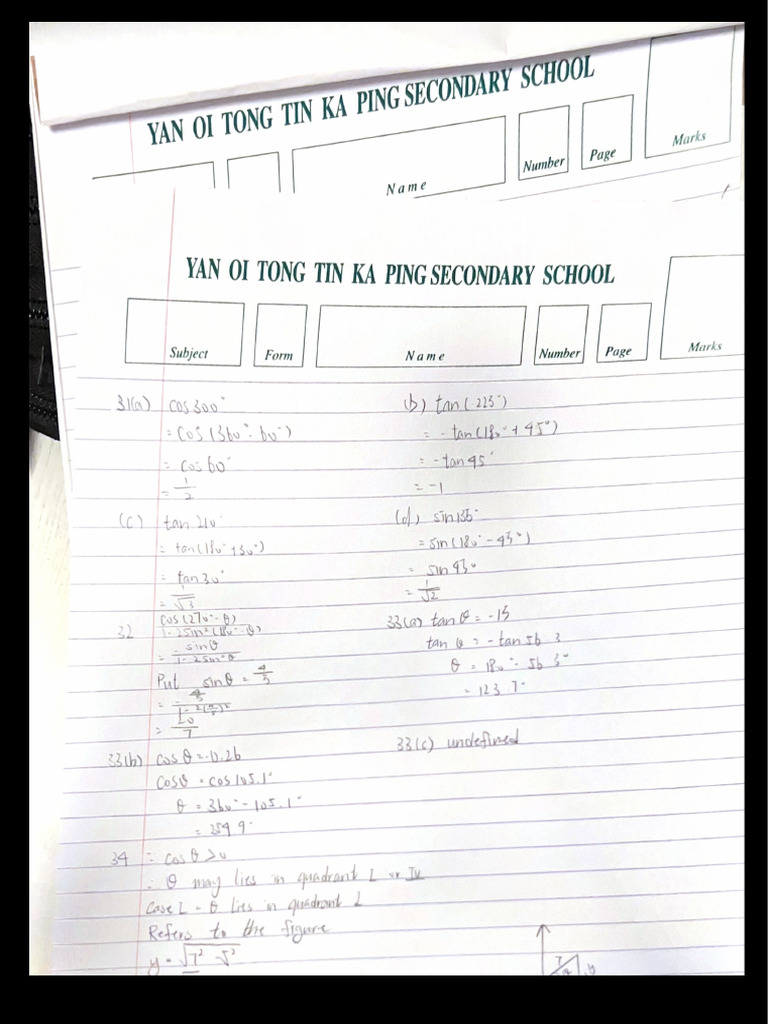 YAN OI TONG TIN KA PING SECONDARY SCHOOL
Name
Number
Page
Marks
YAN OI TONG TIN KA PING SECONDARY SCHOOL
Subject
Form
Name
Number
Page
Marks
31(a) cos 300°
= cos(360° - 60°)
= cos 60°
= 1/2
(b) tan(-225°)
= -tan(180° + 45°)
= -tan 45°
= -1
(c) tan 210°
= tan(180° + 30°)
= tan 30°
= 1/√3
(d) sin 135°
= sin(180° - 45°)
= sin 45°
= 1/√2
32 cos(270° - θ)/1 - 2sin²(180° - θ)
= -sinθ/1 - 2sin²θ
Put sinθ = 4/5
= 20/7
33(a) tan θ = -1.5
tan θ = -tan 56.3
θ = 180° - 56.3°
= 123.7°
33(b) cos θ = -0.26
cos θ = cos 105.1°
θ = 360° - 105.1°
= 254.9°
33(c) undefined
34 ∵ cos θ > 0
∴ θ may lies in quadrant I or IV
Case 1 - θ lies in quadrant I
Refers to the figure
y = √7² - 5²
7
θ
y